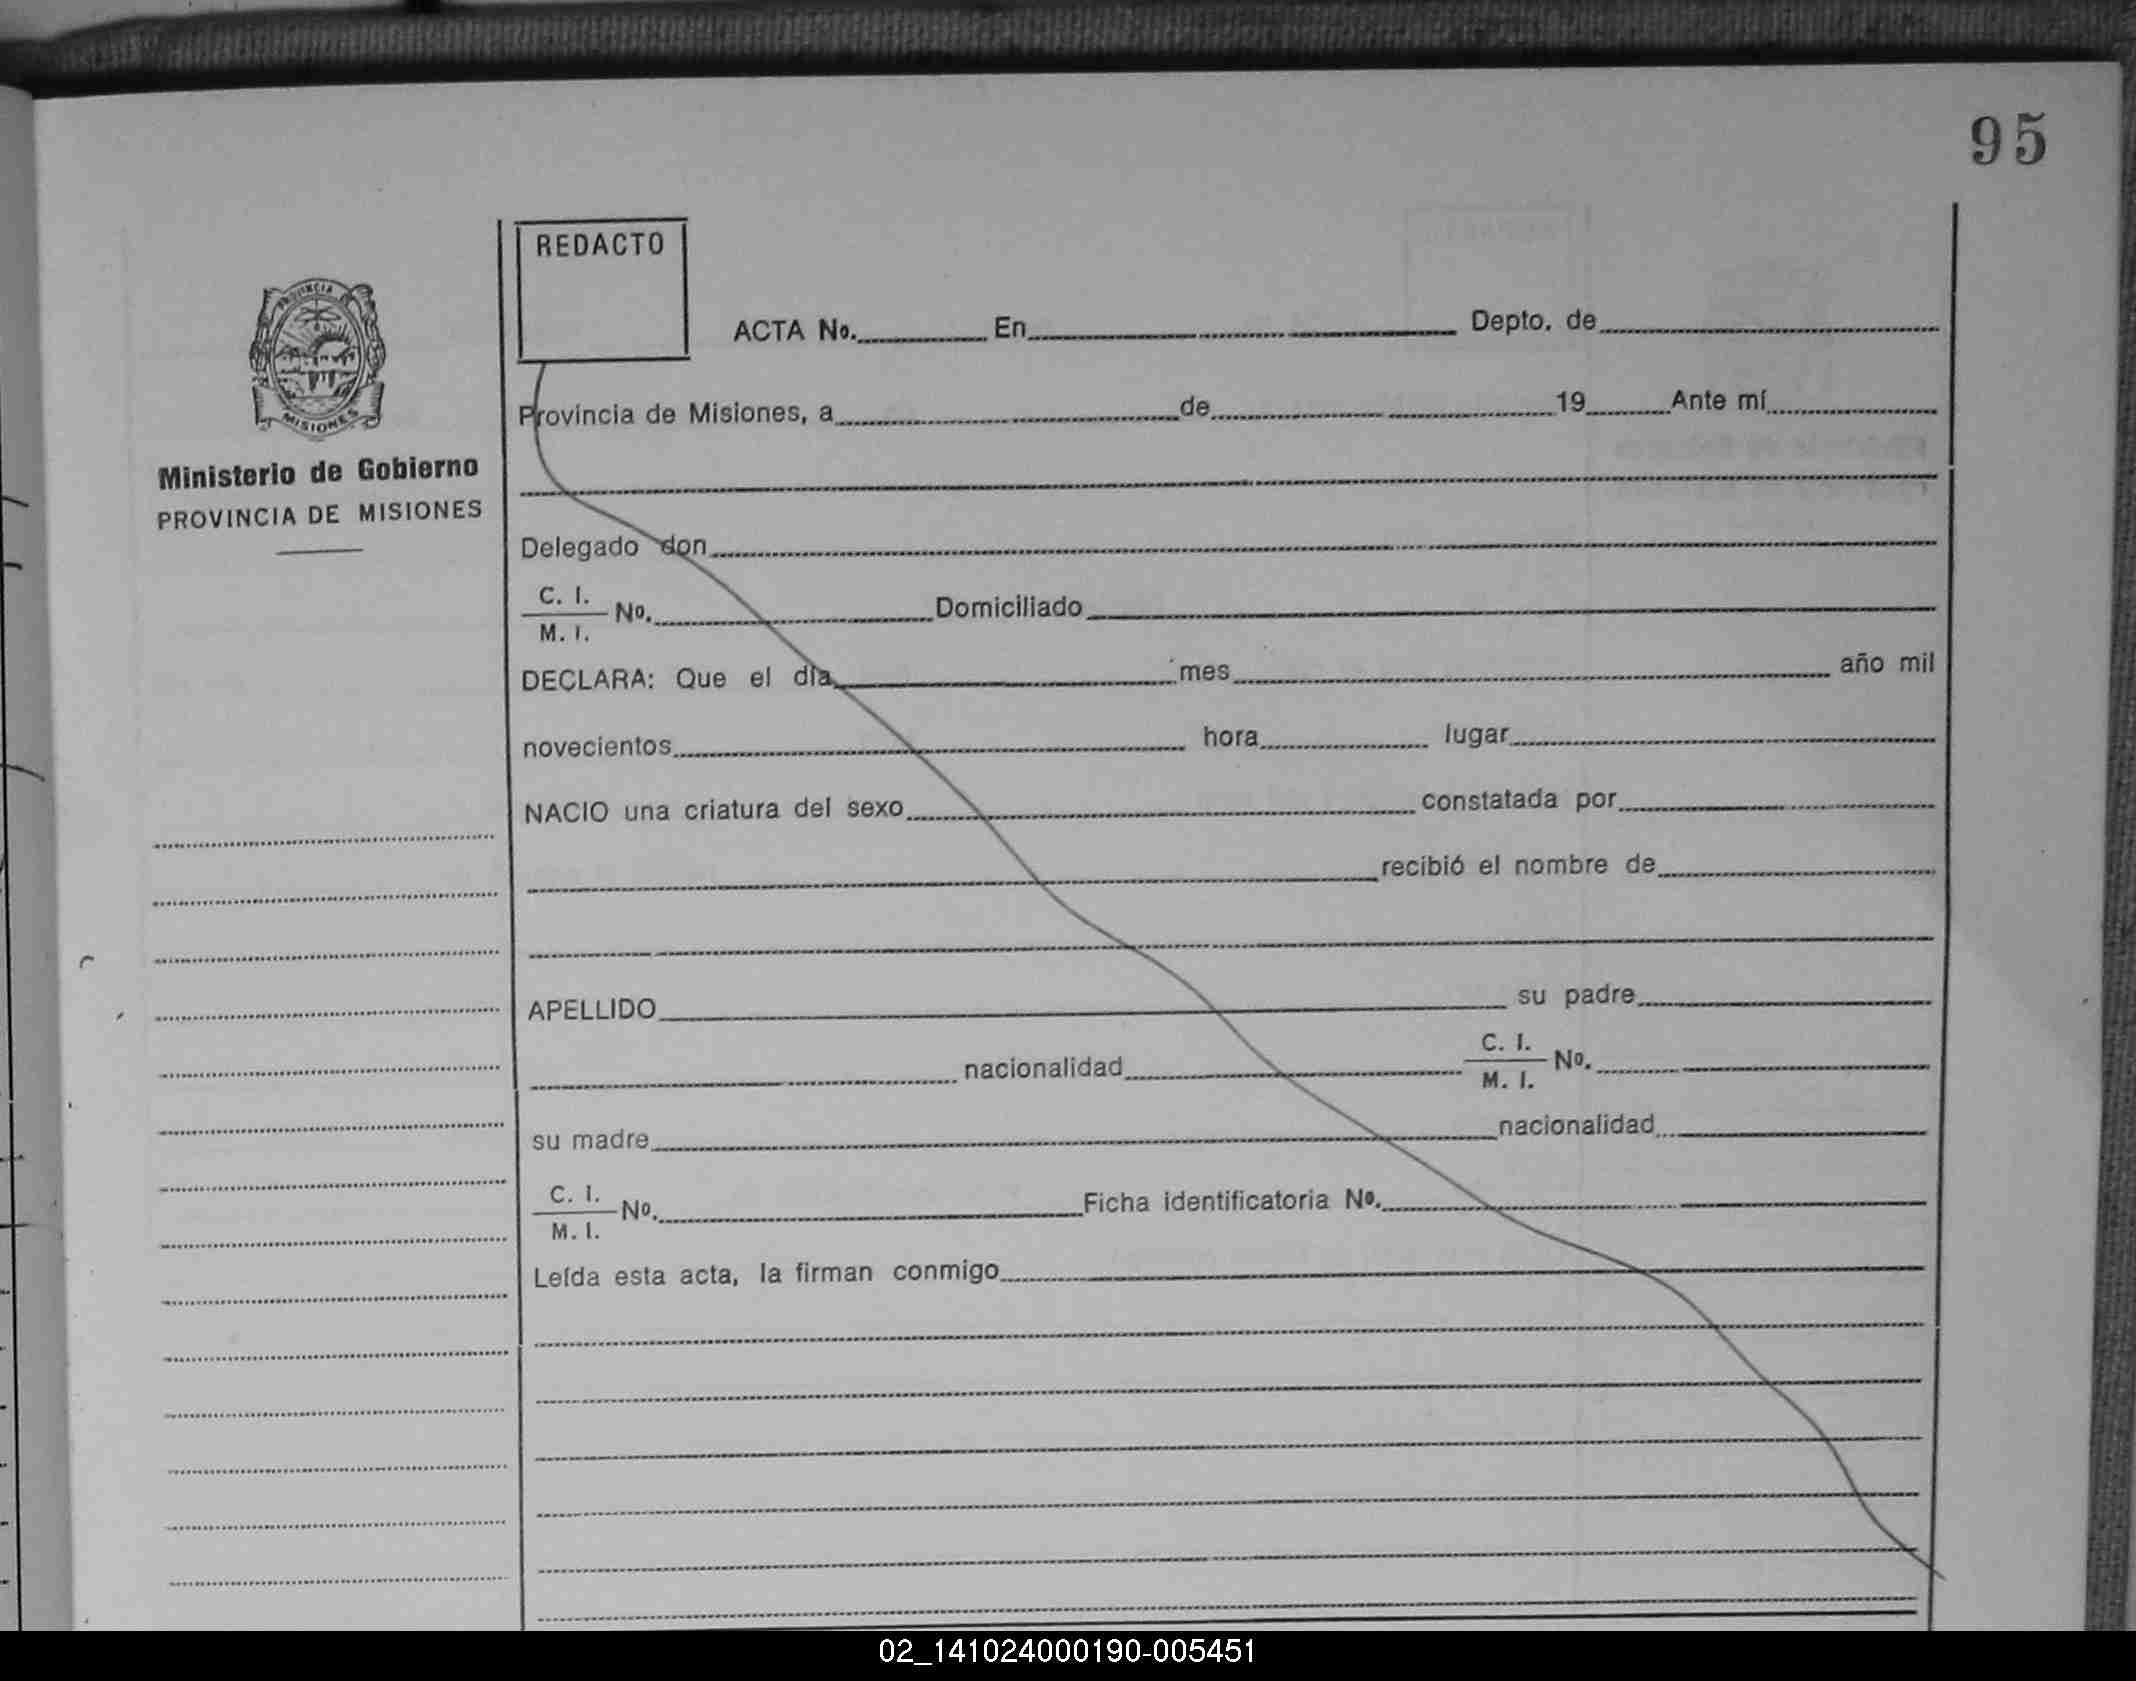 95
REDACTO
ACTA No. En Depto. de
PROVINCIA DE
MISIONES
Provincia de Misiones, a de 19 Ante mí
Ministerio de Gobierno
PROVINCIA DE MISIONES
Delegado don
C. I.
M. I. No. Domiciliado
DECLARA: Que el día mes año mil
novecientos hora lugar
NACIO una criatura del sexo constatada por
recibió el nombre de
APELLIDO su padre
nacionalidad C. I.
M. I. No.
su madre nacionalidad
C. I.
M. I. No. Ficha identificatoria No.
Leída esta acta, la firman conmigo
02_141024000190-005451